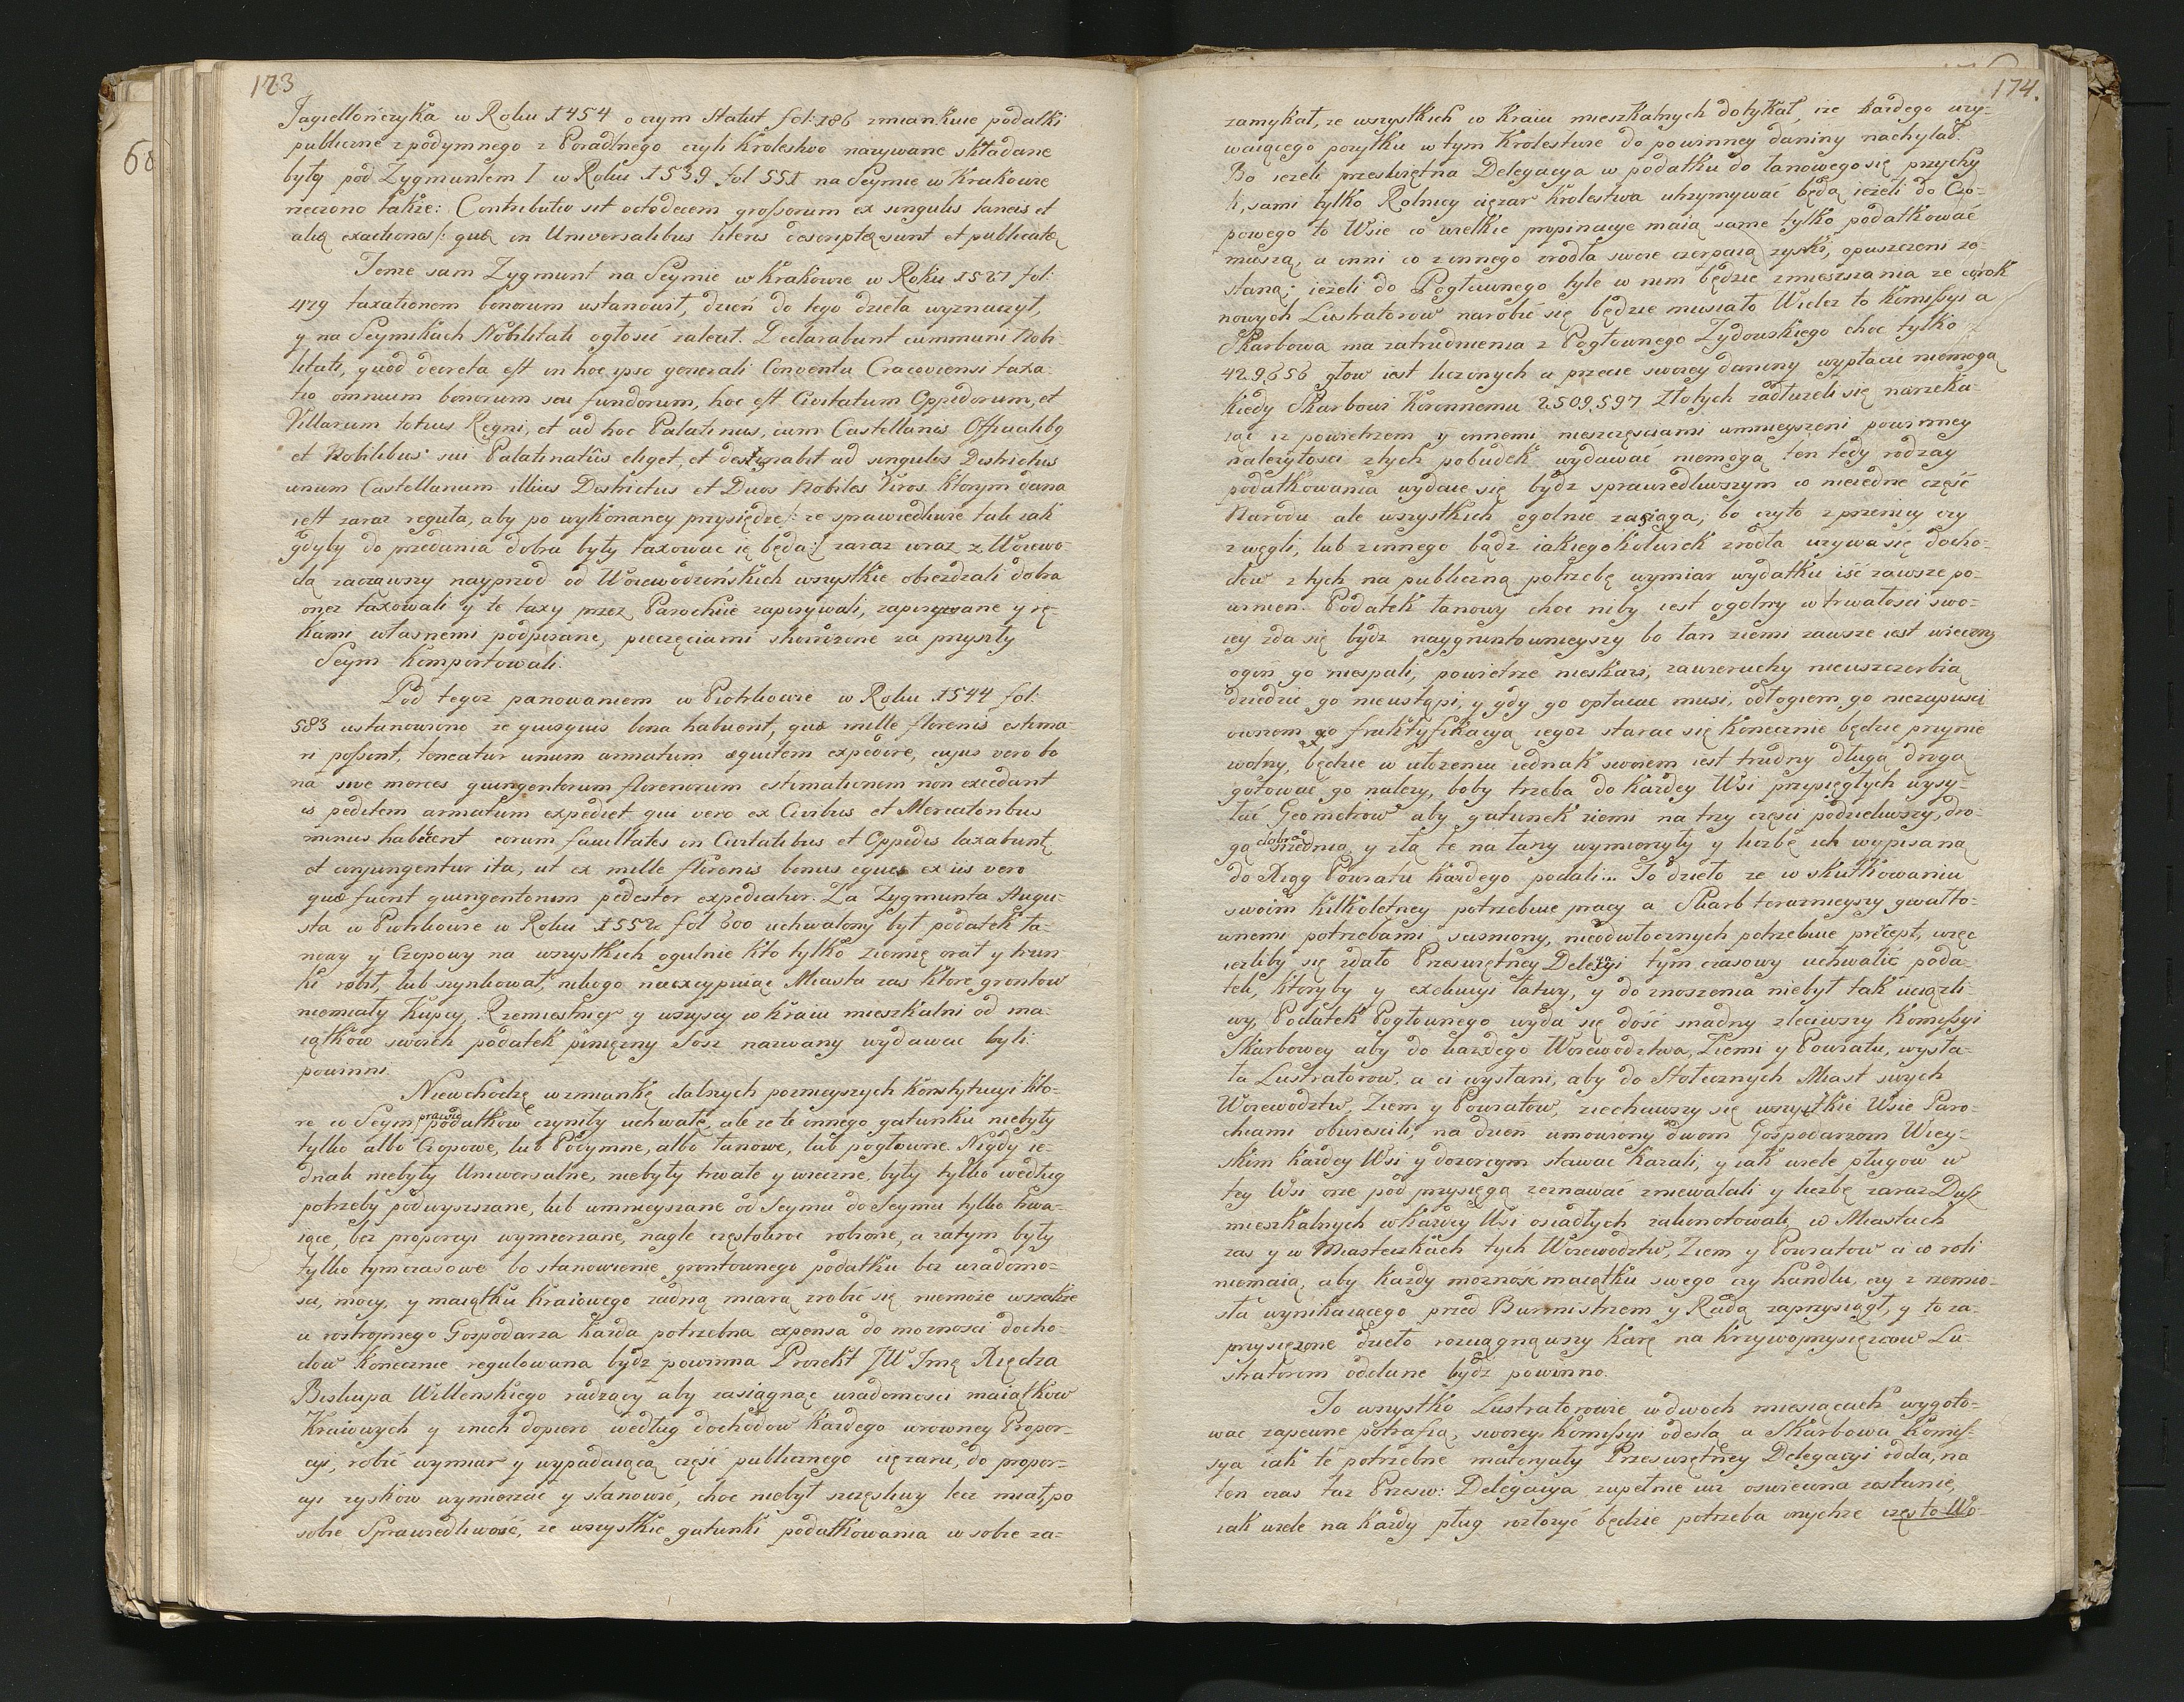 173
68
Jagiellończyka w Roku 1454 o czym Statut fol: 186 zmiankuie podatki
publiczne z podymnego z Poradlnego czyli Krolestwo nazywane składane
były pod Zygmuntem I w Roku 1539 fol 551 na Seymie w Krakowie
rzeczono także: Contributio sit octodecem grossorum ex singulis laneis et
alię exactiones /: quę in Universalibus literis descriptę sunt et publicatę
Tenże sam Zygmunt na Seymie w Krakowie w Roku 1527 fol:
479 taxationem bonorum ustanowił, dzień do tego dzieła wyznaczył,
y na Seymikach Nobilitati ogłosić zalecił. Declarabunt communi Nobi-
litati, quod decreta est in hoc ipso generali Conventu Cracoviensi taxa-
tio omnium bonorum seu fundorum, hoc est Civitatum Oppidorum, et
Villarum totius Regni, et ad hoc Palatinus, cum Castellanis Officialibg
et Nobilibus sui Palatinatûs eliget, et destinabit ad singulos Districtus
unum Castellanum illius Districtus et Duos Nobiles Viros. Ktorym dana
iest zaraz reguła, aby po wykonaney przysiędze /: ze sprawiedliwie tak iak
gdyby do przedania dobra były taxowac ię będa :/ zaraz wraz z Woiewo-
dą zacząwszy nayprzod od Woiewodzińskich wszystkie obiezdzali dobra
onez taxowali y te taxy przez Parochiie zapisywali, zapisywane y rę-
kami własnemi podpisane, pieczęciami stwirdzone za przyszły
Seym komportowali.
Pod tegoz panowaniem w Piotrkowie w Roku 1544 fol:
583 ustanowiono ze quisquis bona habuerit, quæ mille florenis estima-
ri possint, teneatur unum armatum æquitem expedire, cujus vero bo
na sive merces quingentorum florenorum estimationem non excedant
is peditem armatum expediet qui vero ex Civibus et Mercatoribus
minus habuerent eorum facultates in Civitatibus et Oppidis taxabuntę
et conjungentur ita, ut ex mille florenis bonus eques ex iis vero
quæ fuerit quingentorum pedester expediatur. Za Zygmunta Augu-
sta w Piotrkowie w Roku 1552 fol 600 uchwalony był podatek ła-
nowy y Czopowy na wszystkich ogulnie kto tylko ziemię orał y trun-
ki robił, lub szynkował, nikogo nieexcypuiąc Miasta zas ktore grontow
niemiały Kupcy, Rzemiesnicy y wszyscy w kraiu mieszkalni od ma-
iątkow swoich podatek pinięzny Szos nazwany wydawac byli
powinni.
Niewchodzę w zmiankę dalszych poznieyszych Konstytucyi kto-
re co Seym prawie podatkow czyniły uchwałę, ale ze te innego gatunku niebyły
tylko albo Czopowe, lub Podymne, albo łanowe, lub pogłowne. Nigdy ie-
dnak niebyły Uniwersalne, niebyły trwałe y wieczne, były tylko według
potrzeby podwyszszane, lub umnieyszane od Seymu do Seymu tylko trwa-
iące, bez proporcyi wymierzane, nagle częstokroc robione, a zatym były
tylko tymczasowe bo stanowienie grontownego podatku bez wiadomo-
sci, mocy, y maiątku kraiowego zadną miarą zrobić się niemoże wszakże
u rostropnego Gospodarza każda potrzebna expensa do moznosci docho-
dow koniecznie regulowana bydz powinna Proiekt JW Jmę Xiędza
Biskupa Willenskiego radzący aby zasiągnąc wiadomosci maiątkow
Kraiowych y z nich dopiero według dochodow każdego w rowney Propor-
cyi, robić wymiar y wypadaiącą część publicznego ciężaru, do propor-
cyi zyskow wymierzac y stanowić, choc niebył szczęsliwy lecz miał, po
sobie Sprawiedliwość, ze wszystkie gatunki podatkowania w sobie za-
174.
zamykał, ze wszystkich w Kraiu mieszkalnych dotykał, ize każdego uzy-
waiącego pozytku w tym Krolestwie do powinney daniny nachylał.
Bo iezeli przeswiętna Delegacya w podatku do łanowego się przychy
li, sami tylko Rolnicy cięzar Krolestwa utrzymywać będą iezeli do Czo-
powego to Wsie co wielkie propinacye maią same tylko podatkować
muszą, a inni co z innego zrodła swoie czerpaią zyski, opuszczeni zo-
staną: iezeli do Pogłownego tyle w nim będzie zmieszania ze co rok
nowych Lustratorow narobić się będzie musiało Wielez to Komissyi a
Skarbowa ma zatrudnienia z Pogłownego Zydowskiego choc tylko
429,656 głow iest liczonych a przecie swoiey daniny wypłacic niemogą
kiedy Skarbowi Koronnemu 2,509,597 Złotych zadłuzeli się narzeka-
iąc iz powietrzem y innemi nieszczęsciami umnieyszeni powinney
nalezytosci z tych pobudek wydawać niemogą ten tedy rodzay
podatkowania wydaie się bydz sprawiedliwszym co nieiedne część
Narodu ale wszystkich ogolnie zasiąga; bo czyto z przenicy czy
z węgli, lub z innego bądz iakiegokolwiek zrodła uzywa się docho-
dow z tych na publiczną potrzebę wymiar wydatku iść zawsze po-
winien. Podatek łanowy choc niby iest ogolny w trwałosci swo-
iey zda się bydz naygruntownieyszy bo łan ziemi zawsze iest wieczny
ogin go niespali, powietrze nieskazi, zawieruchy nieuszczerbią
dziedzic go nieustąpi, y gdy go opłacac musi, odłogiem go niezapusci
owszem go fruktyfikacyą iegoz starac się koniecznie będzie przynie
wolny, będzie w ułozeniu iednak swoiem iest trudny długą drogą
gotowac go nalezy, boby trzeba do każdey Wsi przysięgłych wysy-
łać Geometrow aby gatunek ziemi na trzy części podzieliwszy, dro-
gą dobrą srednią, y złą te na łany wymierzyły y liczbę ich wypisaną
do Xiąg Powiatu każdego podali... To dzieło ze w skutkowaniu
swoim kilkoletney potrzebuie pracy a Skarb teraznieyszy gwałto-
wnemi potrzebami scisniony, nieodwłocznych potrzebuie precept, więc
iezliby się zdało Przeswiętney Delegacyi tymczasowy uchwalić poda-
tek, ktoryby y exekucyi łatwy, y do znoszenia niebył tak uciązli-
wy, Podatek Pogłownego wyda się dość snadny zleciwszy Komissyi
Skarbowey aby do każdego Woiewodztwa, Ziemi y Powiatu, wysła-
ła Lustratorow, a ci wysłani, aby do Stołecznych Miast swych
Woiewodztw, Ziem y Powiatow, ziechawszy się wszystkie Wsie Paro-
chiami obwiescili, na dzien umowiony dwom Gospodarzom Wiey-
skim każdey Wsi y dozorcym stawac kazali, y iak wiele pługow w
tey Wsi orze pod przysięgą zeznawać zniewalali y liczbę zaraz Dusz
mieszkalnych w każdey Wsi osiadłych zakonotowali, w Miastach
zas y w Miasteczkach tych Woiewodztw, Ziem y Powiatow ci co roli
niemaią, aby każdy mozność maiątku swego czy handlu, czy z rzemio-
sła wynikaiącego przed Burmistrzem y Radą zaprzysiągł, y to za-
przysięzone dzieło rozciągnąwszy karę na krzywoprzysięzcow Lu-
stratorom oddane bydz powinno.
To wszystko Lustratorowie w dwoch miesiącach wygoto-
wac zapewne potrafią, swoiey Komissyi odesla a Skarbowa Komis-
sya iak te potrzebne materyały Przeswiętney Delegacyi odda, na
ten czas taz Przesw: Delegacya zupełnie iuz oswiecona zostanie,
iak wiele na każdy pług rozłozyć będzie potrzeba onychze często Wo-